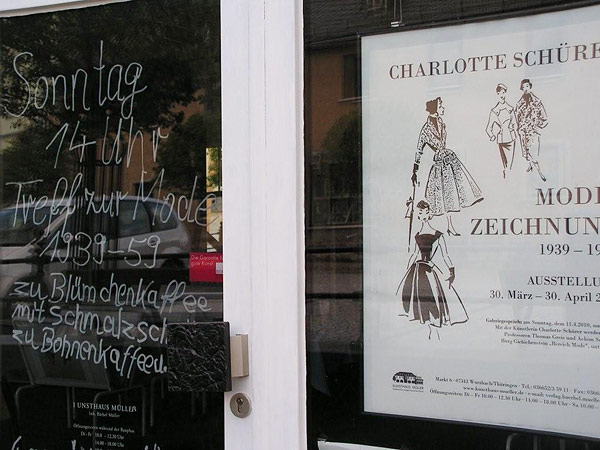 Sonntag
14 Uhr
Treff zur Mode
1939-59
zu Blümchenkaffee
mit Schmalzsch
zu Bohnenkaffeeu.
UNSTHAUS MÜLLER
Inh. Bärbel Müller
Öffnungszeiten während der
CHARLOTTE SCHÜRE
MODE
ZEICHNUN
1939 – 19
AUSSTELLU
30. März – 30. April 2
Galeriegespräch am Sonntag, dem 11.4.2010,
Mit der Künstlerin Charlotte Schürer
Professoren Thomas Greis und
Burg Giebichenstein „Bereich Mode",
KUNSTHAUS MÜLLER
Markt 6 · 07343 Wurzbach/Thüringen · Tel.: 036652/3 59 11 · Fax: 0366
www.kunsthaus-mueller.de · e-mail: verlag.baerbel.muel
Öffnungszeiten: Di - Fr 10.00 - 12.30 Uhr · 14.00 - 18.00 Uhr · Sa. 10.00 -